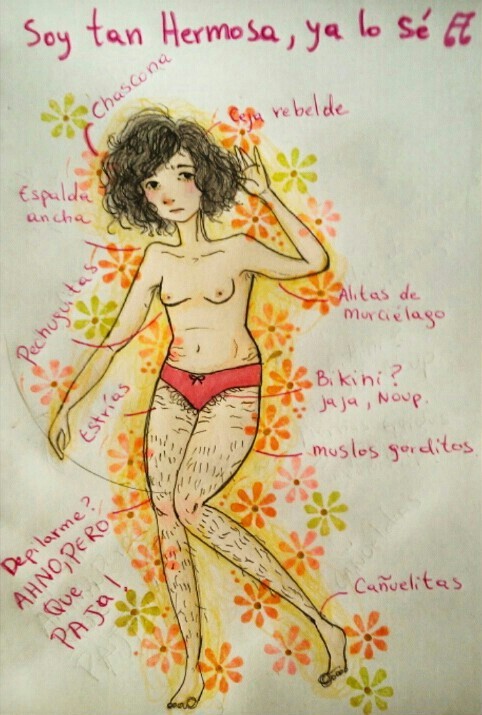 Soy tan Hermosa, ya lo sé
Chascona
Ceja rebelde
Espalda
ancha
Pechuguitas
Alitas de
Murciélago
Estrías
Bikini?
jaja, Noup.
muslos gorditos
Depilarme?
AHNO, PERO
QUE
PAJA!
Cañuelitas